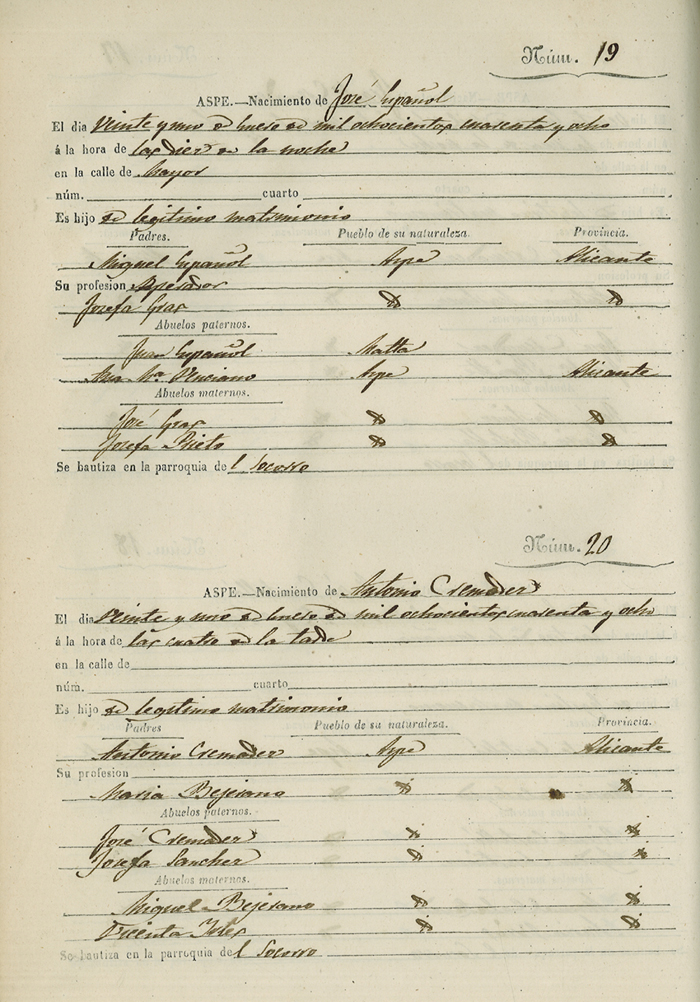 Núm. 19
ASPE.—Nacimiento de José Español
El dia Veinte y uno de Enero de mil ochocientos cuarenta y ocho
á la hora de las diez de la noche
en la calle de Mayor
núm. cuarto
Es hijo de legitimo matrimonio
Padres. Pueblo de su naturaleza. Provincia.
Miguel Español Aspe Alicante
Su profesion
Josefa Gras
Abuelos paternos.
Juan Español Malta
Ana Mª Aspe Alicante
Abuelos maternos.
José Gras
Josefa Prieto
Se bautiza en la parroquia del Socorro
Núm. 20
ASPE.—Nacimiento de Antonio Cremades
El dia Veinte y uno de Enero de mil ochocientos cuarenta y ocho
á la hora de las cuatro de la tarde
en la calle de
núm. cuarto
Es hijo de legitimo matrimonio
Padres Pueblo de su naturaleza. Provincia.
Antonio Cremades Aspe Alicante
Su profesion
Maria Bejerano
Abuelos paternos.
José Cremades
Josefa Sanchez
Abuelos maternos.
Miguel Bejerano
Se bautiza en la parroquia del Socorro